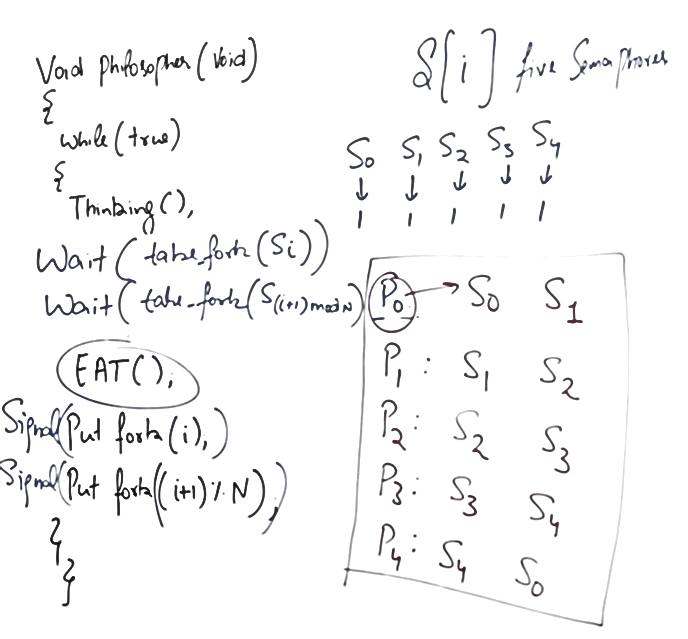 Void philosopher(void)
{
while(true)
{
Thinking(),
Wait(take_fork(Si))
Wait(take-fork(S(i+1)modN)
EAT(),
Signal(Put fork(i),)
Signal(Put fork((i+1)%N),)
}
}
S[i] five Semaphores
S0 S1 S2 S3 S4
↓ ↓ ↓ ↓ ↓
1 1 1 1 1
P0 → S0 S1
P1: S1 S2
P2: S2 S3
P3: S3 S4
P4: S4 S0